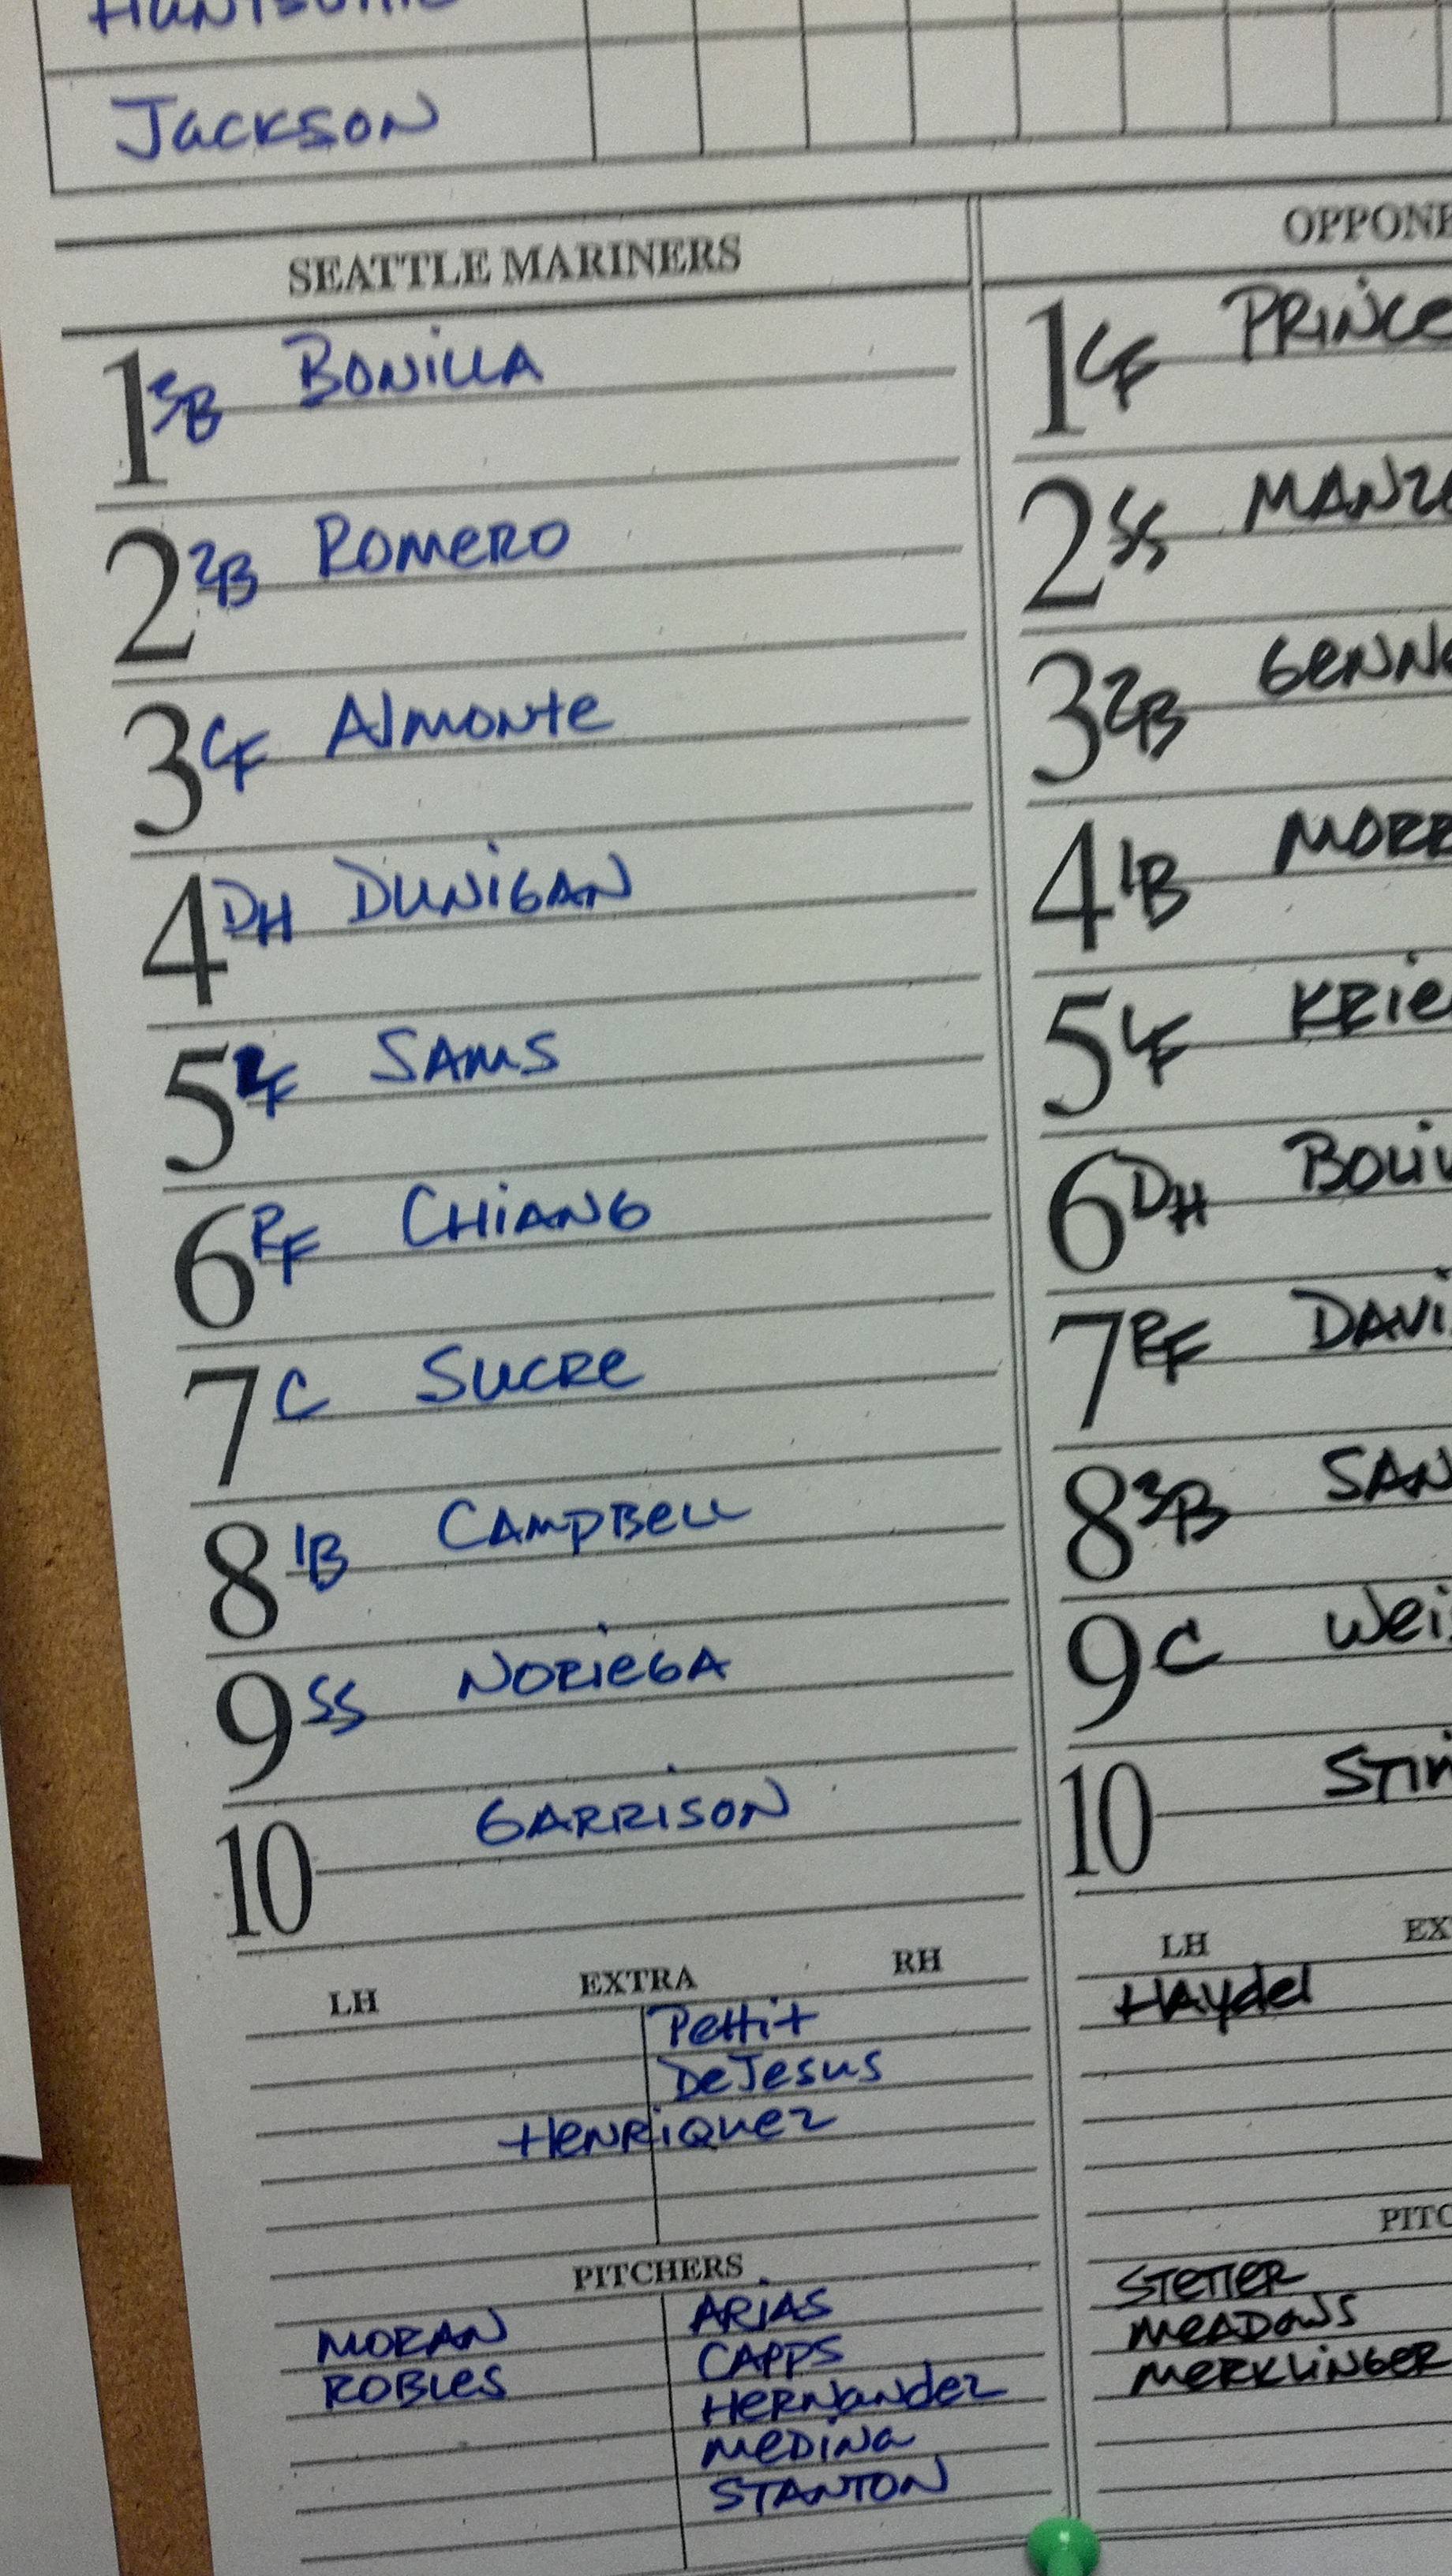 Jackson
SEATTLE MARINERS
1 3B BONILLA
2 2B ROMERO
3 CF Almonte
4 DH DUNIGAN
5 LF SAMS
6 RF CHIANG
7 C SUCRE
8 1B CAMPBELL
9 SS NORIEGA
10 GARRISON
LH EXTRA RH
Pettit
DeJesus
HENRIQUEZ
PITCHERS
MORAN ARIAS
ROBLES CAPPS
HERNANDEZ
MEDINA
STANTON
1 CF PRINCE
2 SS
3 2B
4 1B
5 LF
6 DH
7 RF
8 3B
9 C
10
LH
HAYdel
STETTER
MEADOWS
MERKLINGER